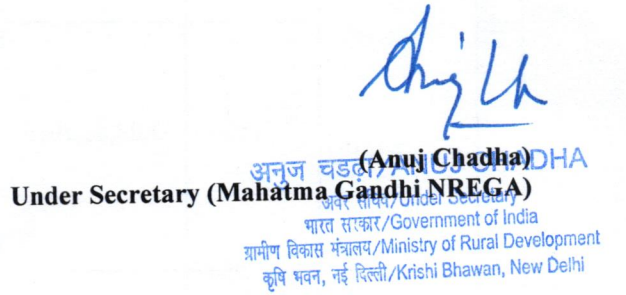 (Anuj Chadha)
अनुज चडढ़ा/ANUJ CHADHA
Under Secretary (Mahatma Gandhi NREGA)
अवर सचिव/Under Secretary
भारत सरकार/Government of India
ग्रामीण विकास मंत्रालय/Ministry of Rural Development
कृषि भवन, नई दिल्ली/Krishi Bhawan, New Delhi